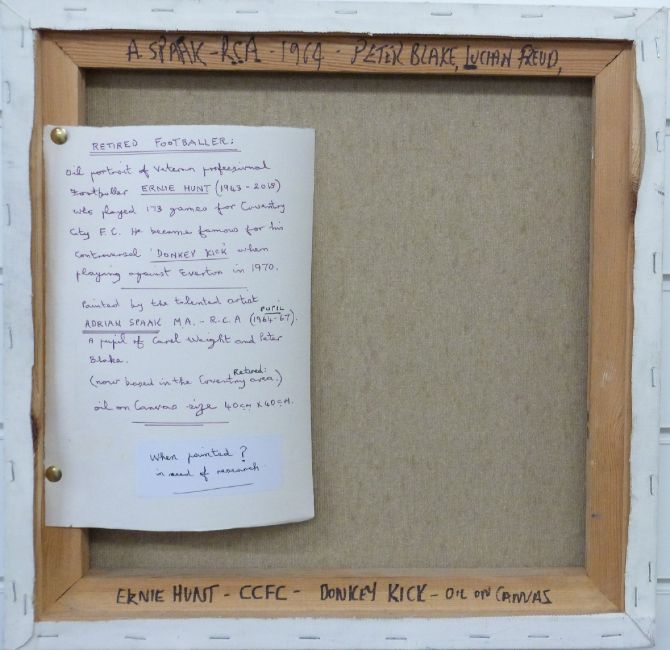 A SPAAK - RCA - 1964 - PETER BLAKE, LUCIAN FREUD,
RETIRED FOOTBALLER:
Oil portrait of Veteran professional
Footballer ERNIE HUNT (1943 - 2018)
who played 173 games for Coventry
City F.C. He became famous for his
controversal 'DONKEY KICK' when
playing against Everton in 1970.
Painted by the talented artist
PUPIL
ADRIAN SPAAK MA. - R.C.A (1964-67).
A pupil of Carel Weight and Peter
Blake.
Retired:
(now based in the Coventry area.)
oil on Canvas size 40cm x 40cm.
When painted?
in need of research.
ERNIE HUNT - CCFC - DONKEY KICK - OIL ON CANVAS